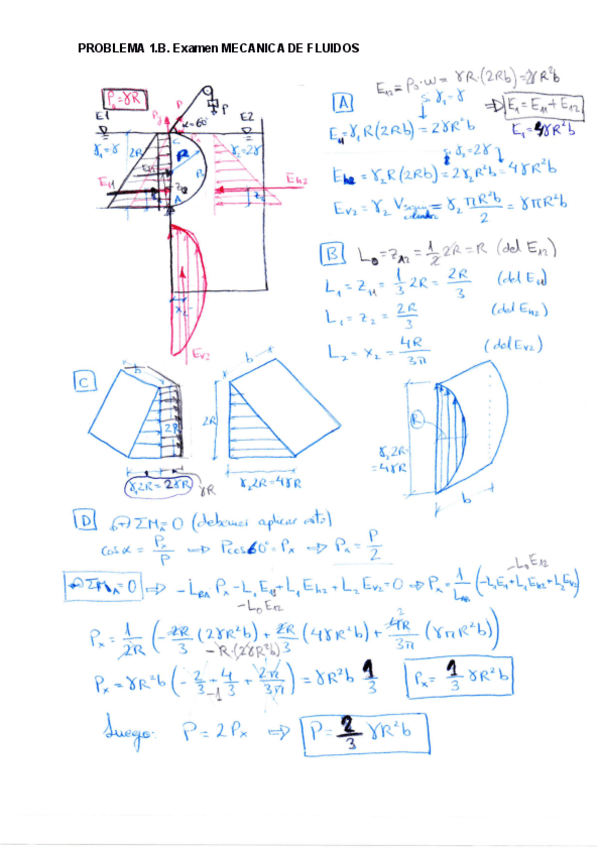 PROBLEMA 1.B. Examen MECANICA DE FLUIDOS
P₀=γR
E1
P
α=60°
E2
γ₁=γ
2R
R
γ₂=2γ
C
B
A
E₁₁
E_h2
X₂
E_v2
A
E₁₂ = P₀·w = γR·(2Rb) = 2γR²b
si γ₁=γ
E₁₁=γ₁R(2Rb) = 2γR²b
⇒ E₁=E₁₁+E₁₂
E₁=4γR²b
si γ₂=2γ
E_h2 = γ₂R(2Rb) = 2γ₂R²b = 4γR²b
E_v2 = γ₂ V = γ₂ πR²b/2 = γπR²b
B
L₀=z₁₂=1/2 2R=R (del E₁₂)
L₁=z₁₁=1/3 2R=2R/3 (del E₁₁)
L₁=z₂=2R/3 (del E_h2)
L₂=x₂=4R/3π (del E_v2)
C
b
2R
γ₁2R=2γR
γR
b
2R
γ₂2R=4γR
R
γ₂2R
=4γR
b
D
ΣM_A=0 (debemos aplicar esto)
cosα=Px/P ⇒ Pcos60°=Px ⇒ Px=P/2
ΣM_A=0 ⇒ -L_BA Px-L₁E₁₁+L₁E_h2+L₂E_v2=0 ⇒ Px=1/L_BA (-L₁E₁+L₁E_h2+L₂E_v2)
-L₀E₁₂
-L₀E₁₂
Px=1/2R (-2R/3 (2γR²b)+2R/3 (4γR²b)+4R/3π (γπR²b))
-R·(2γR²b)
Px=γR²b(-2/3+4/3+2π/3π)=γR²b 1/3
-1
Px=1/3 γR²b
Luego: P=2Px ⇒ P=2/3 γR²b